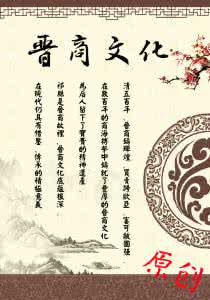 晋商文化
清五百年 晋商辉煌 贾者跨欧亚 富可敌国强
在数百年的商海搏击中铸就了丰厚的晋商文化
为后人留下了宝贵的精神遗产
祁县是晋商故里 晋商文化底蕴很深
在现代仍具有借鉴 传承的积极意义
原创